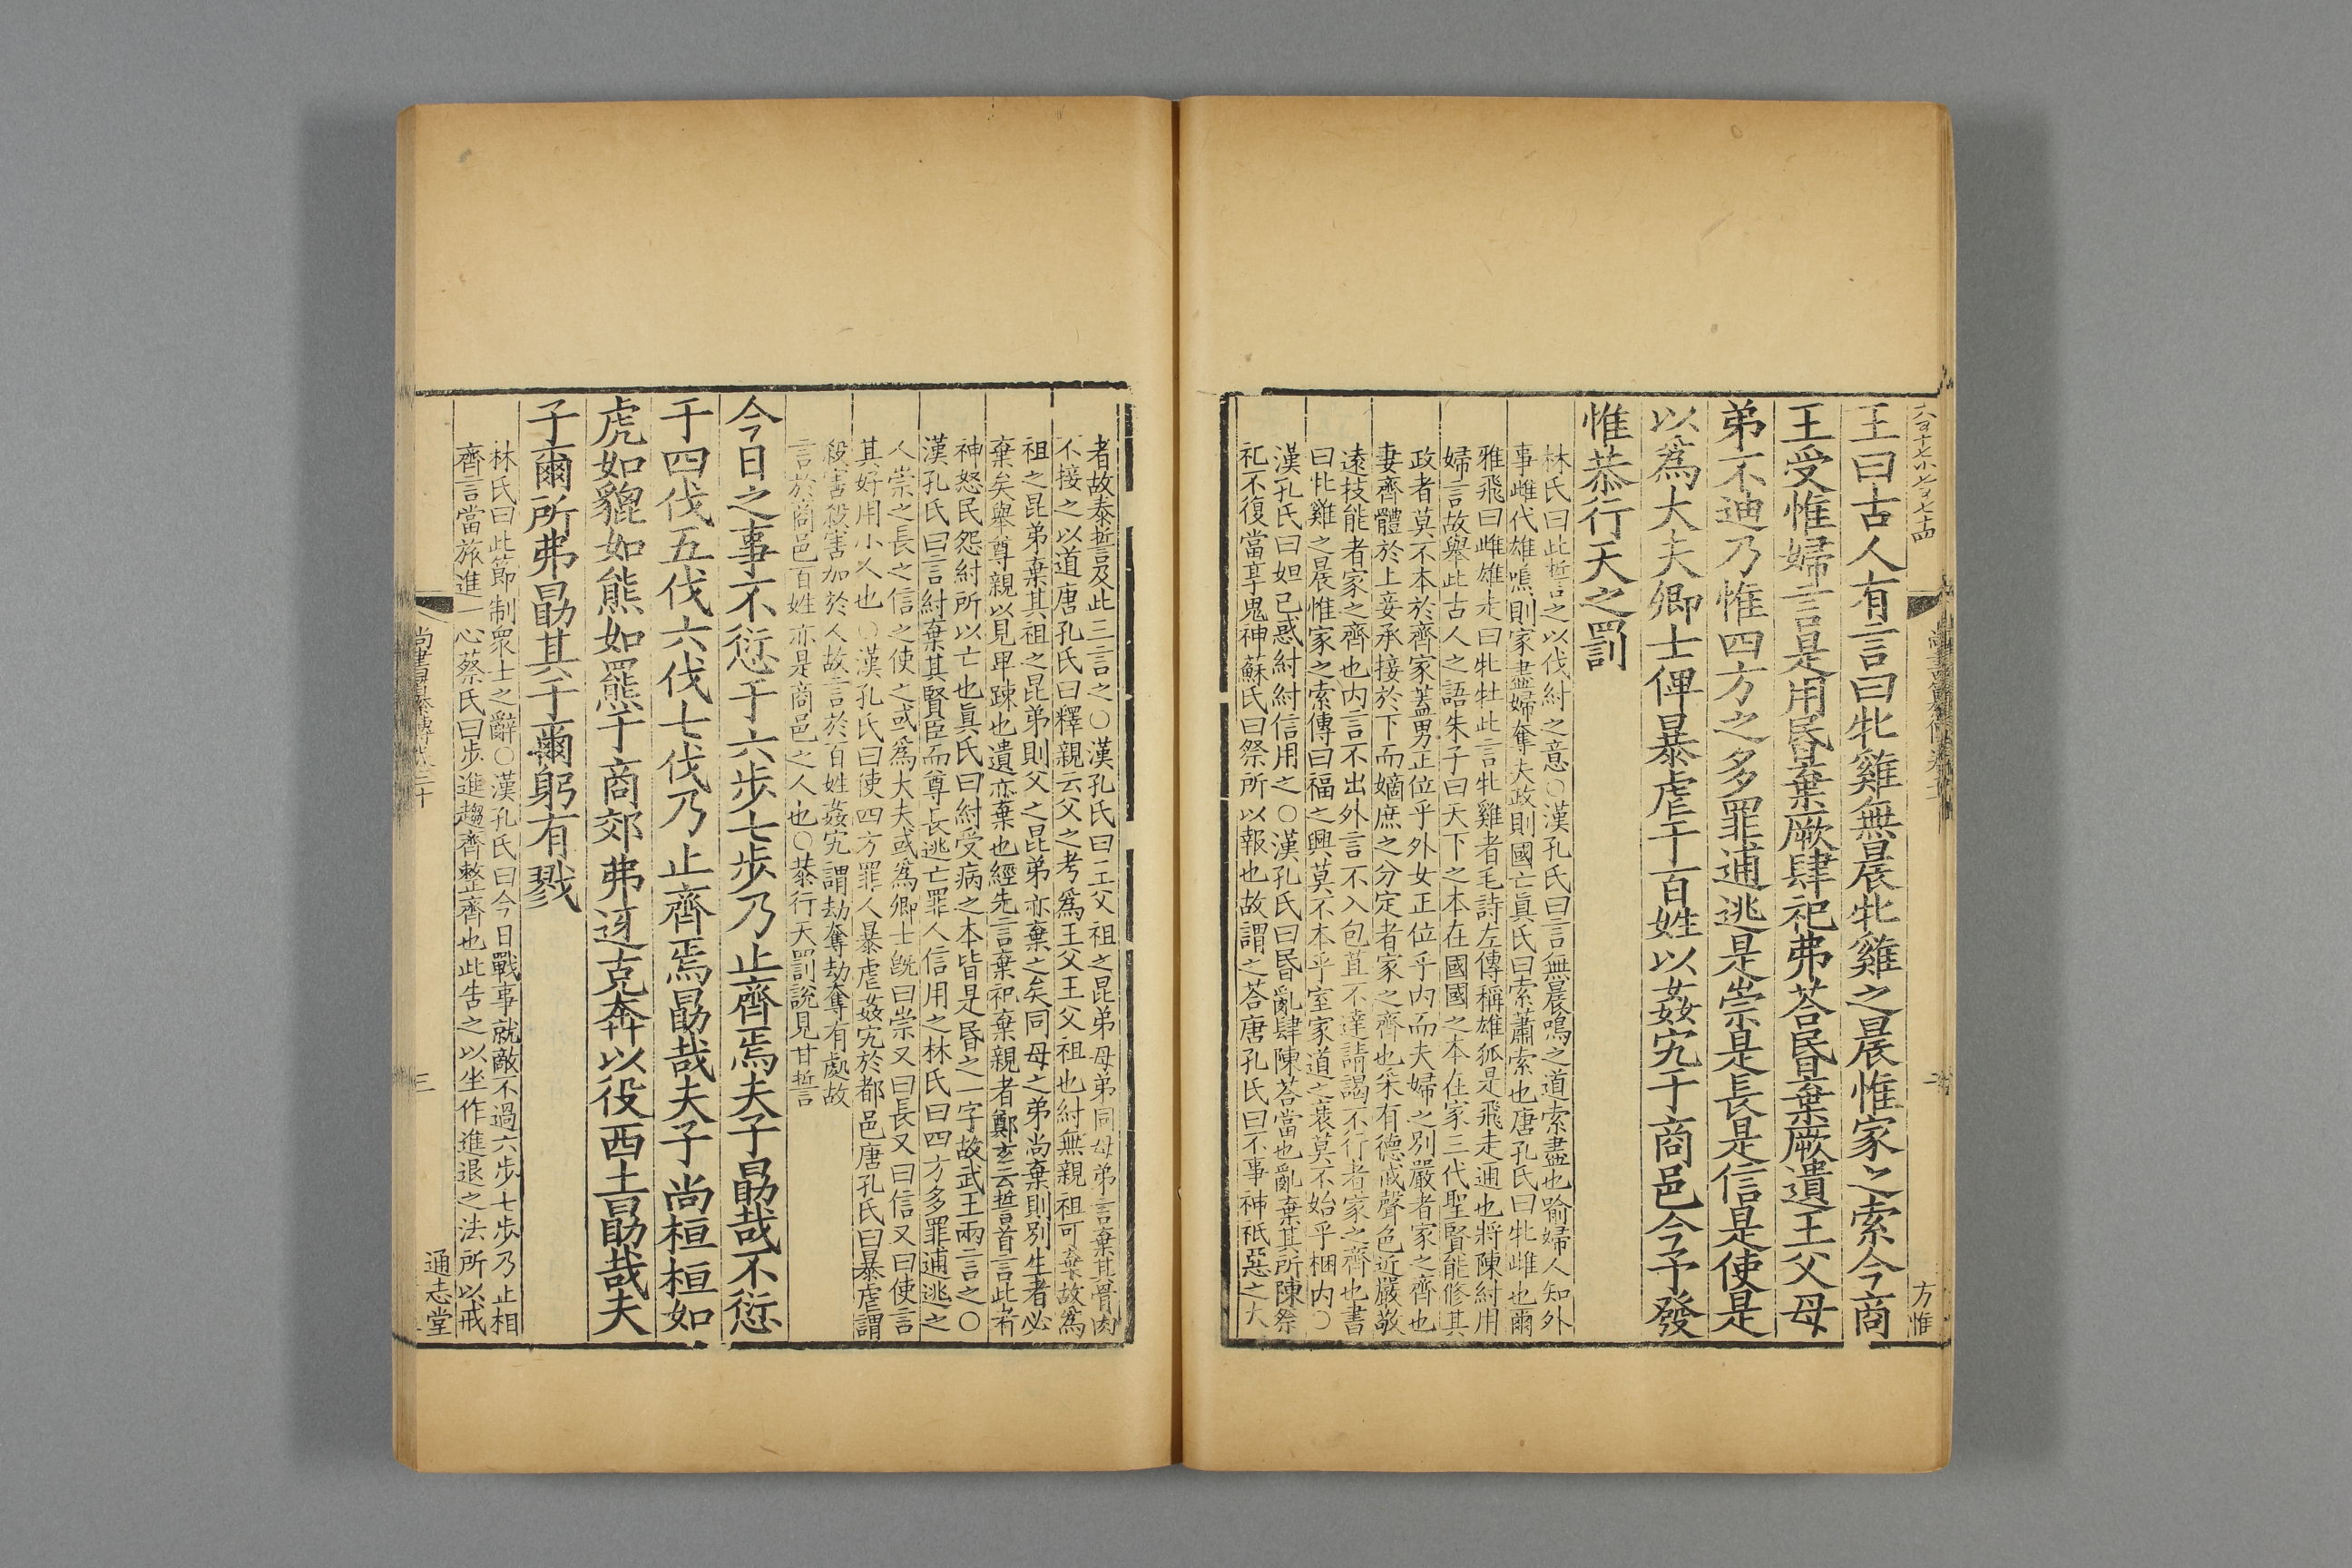 王曰古人有言曰牝雞無晨牝雞之晨惟家之索今商
王受惟婦言是用昬棄厥肆祀弗荅昬棄厥遺王父母
弟不迪乃惟四方之多罪逋逃是崇是長是信是使是
以爲大夫卿士俾暴虐于百姓以姦宄于商邑今予發
惟恭行天之罰
林氏曰此誓言之以伐紂之意○漢孔氏曰言無晨鳴之道索盡也喻婦人知外
事雌代雄鳴則家盡婦奪夫政則國亡眞氏曰索蕭索也唐孔氏曰牝雌也爾
雅飛曰雌雄走曰牝牡此言牝雞者毛詩左傳稱雄狐是飛走通也將陳紂用
婦言故舉此古人之語朱子曰天下之本在國國之本在家三代聖賢能修其
政者莫不本於齊家蓋男正位乎外女正位乎内而夫婦之別嚴者家之齊也
妻齊體於上妾承接於下而嫡庶之分定者家之齊也采有德戒聲色近嚴敬
遠技能者家之齊也内言不出外言不入包苴不達請謁不行者家之齊也書
曰牝雞之晨惟家之索傳曰福之興莫不本乎室家道之衰莫不始乎梱内○
漢孔氏曰妲己惑紂紂信用之○漢孔氏曰昬亂肆陳荅當也亂棄其所陳祭
祀不復當享鬼神蘇氏曰祭所以報也故謂之荅唐孔氏曰不事神祇惡之大
方惟
者故泰誓及此三言之○漢孔氏曰王父祖之昆弟母弟同母弟言棄其骨肉
不接之以道唐孔氏曰釋親云父之考爲王父王父祖也紂無親祖可棄故爲
祖之昆弟棄其祖之昆弟則父之昆弟亦棄之矣同母之弟尚棄則別生者必
棄矣舉尊親以見卑踈也遺亦棄也經先言棄祀棄親者鄭玄云誓首言此者
神怒民怨紂所以亡也眞氏曰紂受病之本皆是昬之一字故武王兩言之○
漢孔氏曰言紂棄其賢臣而尊長逃亡罪人信用之林氏曰四方多罪逋逃之
人崇之長之信之使之或爲大夫或爲卿士旣曰崇又曰長又曰信又曰使言
其好用小人也○漢孔氏曰使四方罪人暴虐姦宄於都邑唐孔氏曰暴虐謂
殺害殺害加於人故言於百姓姦宄謂劫奪劫奪有處故
言於商邑百姓亦是商邑之人也○恭行天罰說見甘誓
今日之事不愆于六步七步乃止齊焉夫子勗哉不愆
于四伐五伐六伐七伐乃止齊焉勗哉夫子尚桓桓如
虎如貔如熊如羆于商郊弗迓克奔以役西土勗哉夫
子爾所弗勗其于爾躬有戮
林氏曰此節制衆士之辭○漢孔氏曰今日戰事就敵不過六步七步乃止相
齊言當旅進一心蔡氏曰步進趨齊整齊也此告之以坐作進退之法所以戒
尚書纂傳卷二十
三
通志堂